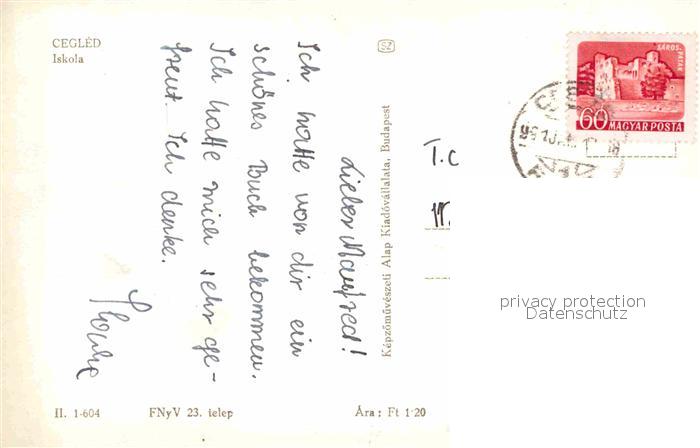 CEGLÉD
Iskola
SZ
SÁROSPATAK
60 MAGYAR POSTA
Lieber Manfred!
Ich hatte von dir ein
schönes Buch bekommen.
Ich hatte mich sehr ge-
freut. Ich denke.
Képzőművészeti Alap Kiadóvállalata, Budapest
T.C
privacy protection
Datenschutz
II. 1-604
FNyV 23. telep
Ára: Ft 1·20